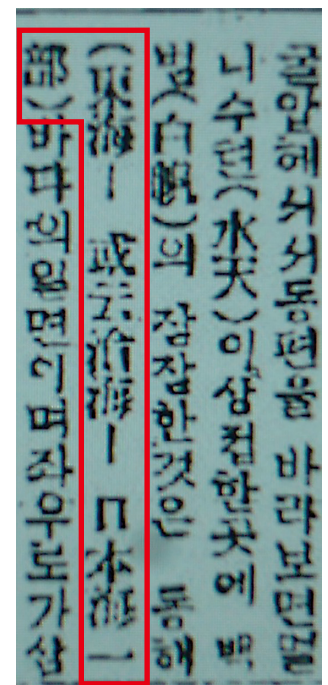 굴암해서서동편을 바라보면멀
니수텬(水天)이상접한곳에 백
범(白帆)의 잠잠한것은 동해
(東海ー 或云滄海ー 日本海一
部)바다의일면이며좌우로가삼